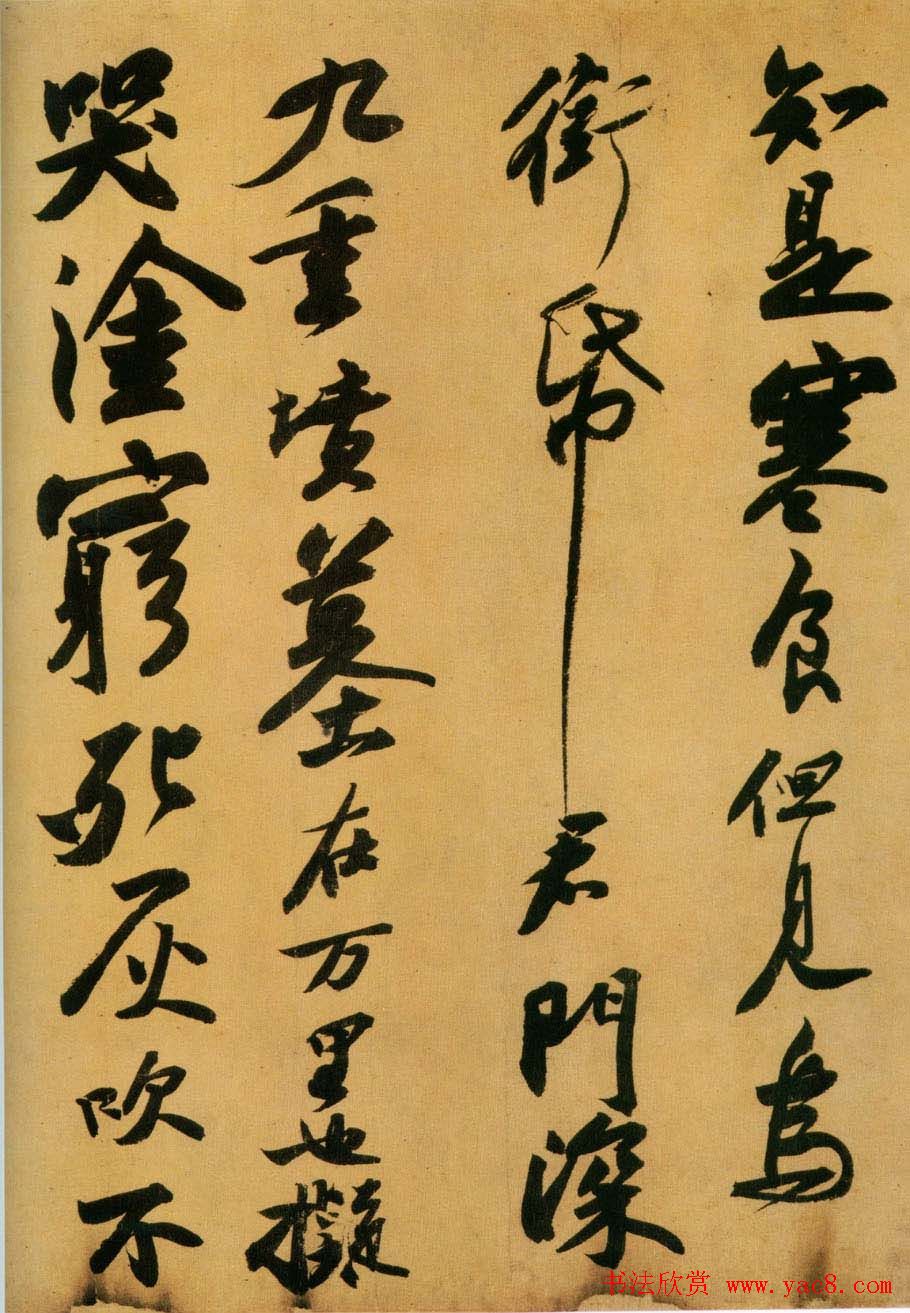 知是寒食但见乌
衔帋君門深
九重墳墓在万里也擬
哭塗窮死灰吹不
书法欣赏 www.yac8.com